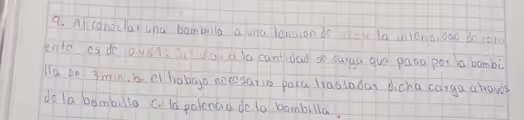 9. Al conectar una bombilla a una tension de la intensidad de corri
ente es de calcula. a la cantidad de carga que pasa por la bombi
lla en 3min. b el trabajo necesario para trasladar dicha carga a través
de la bombilla c. la potencia de la bombilla.